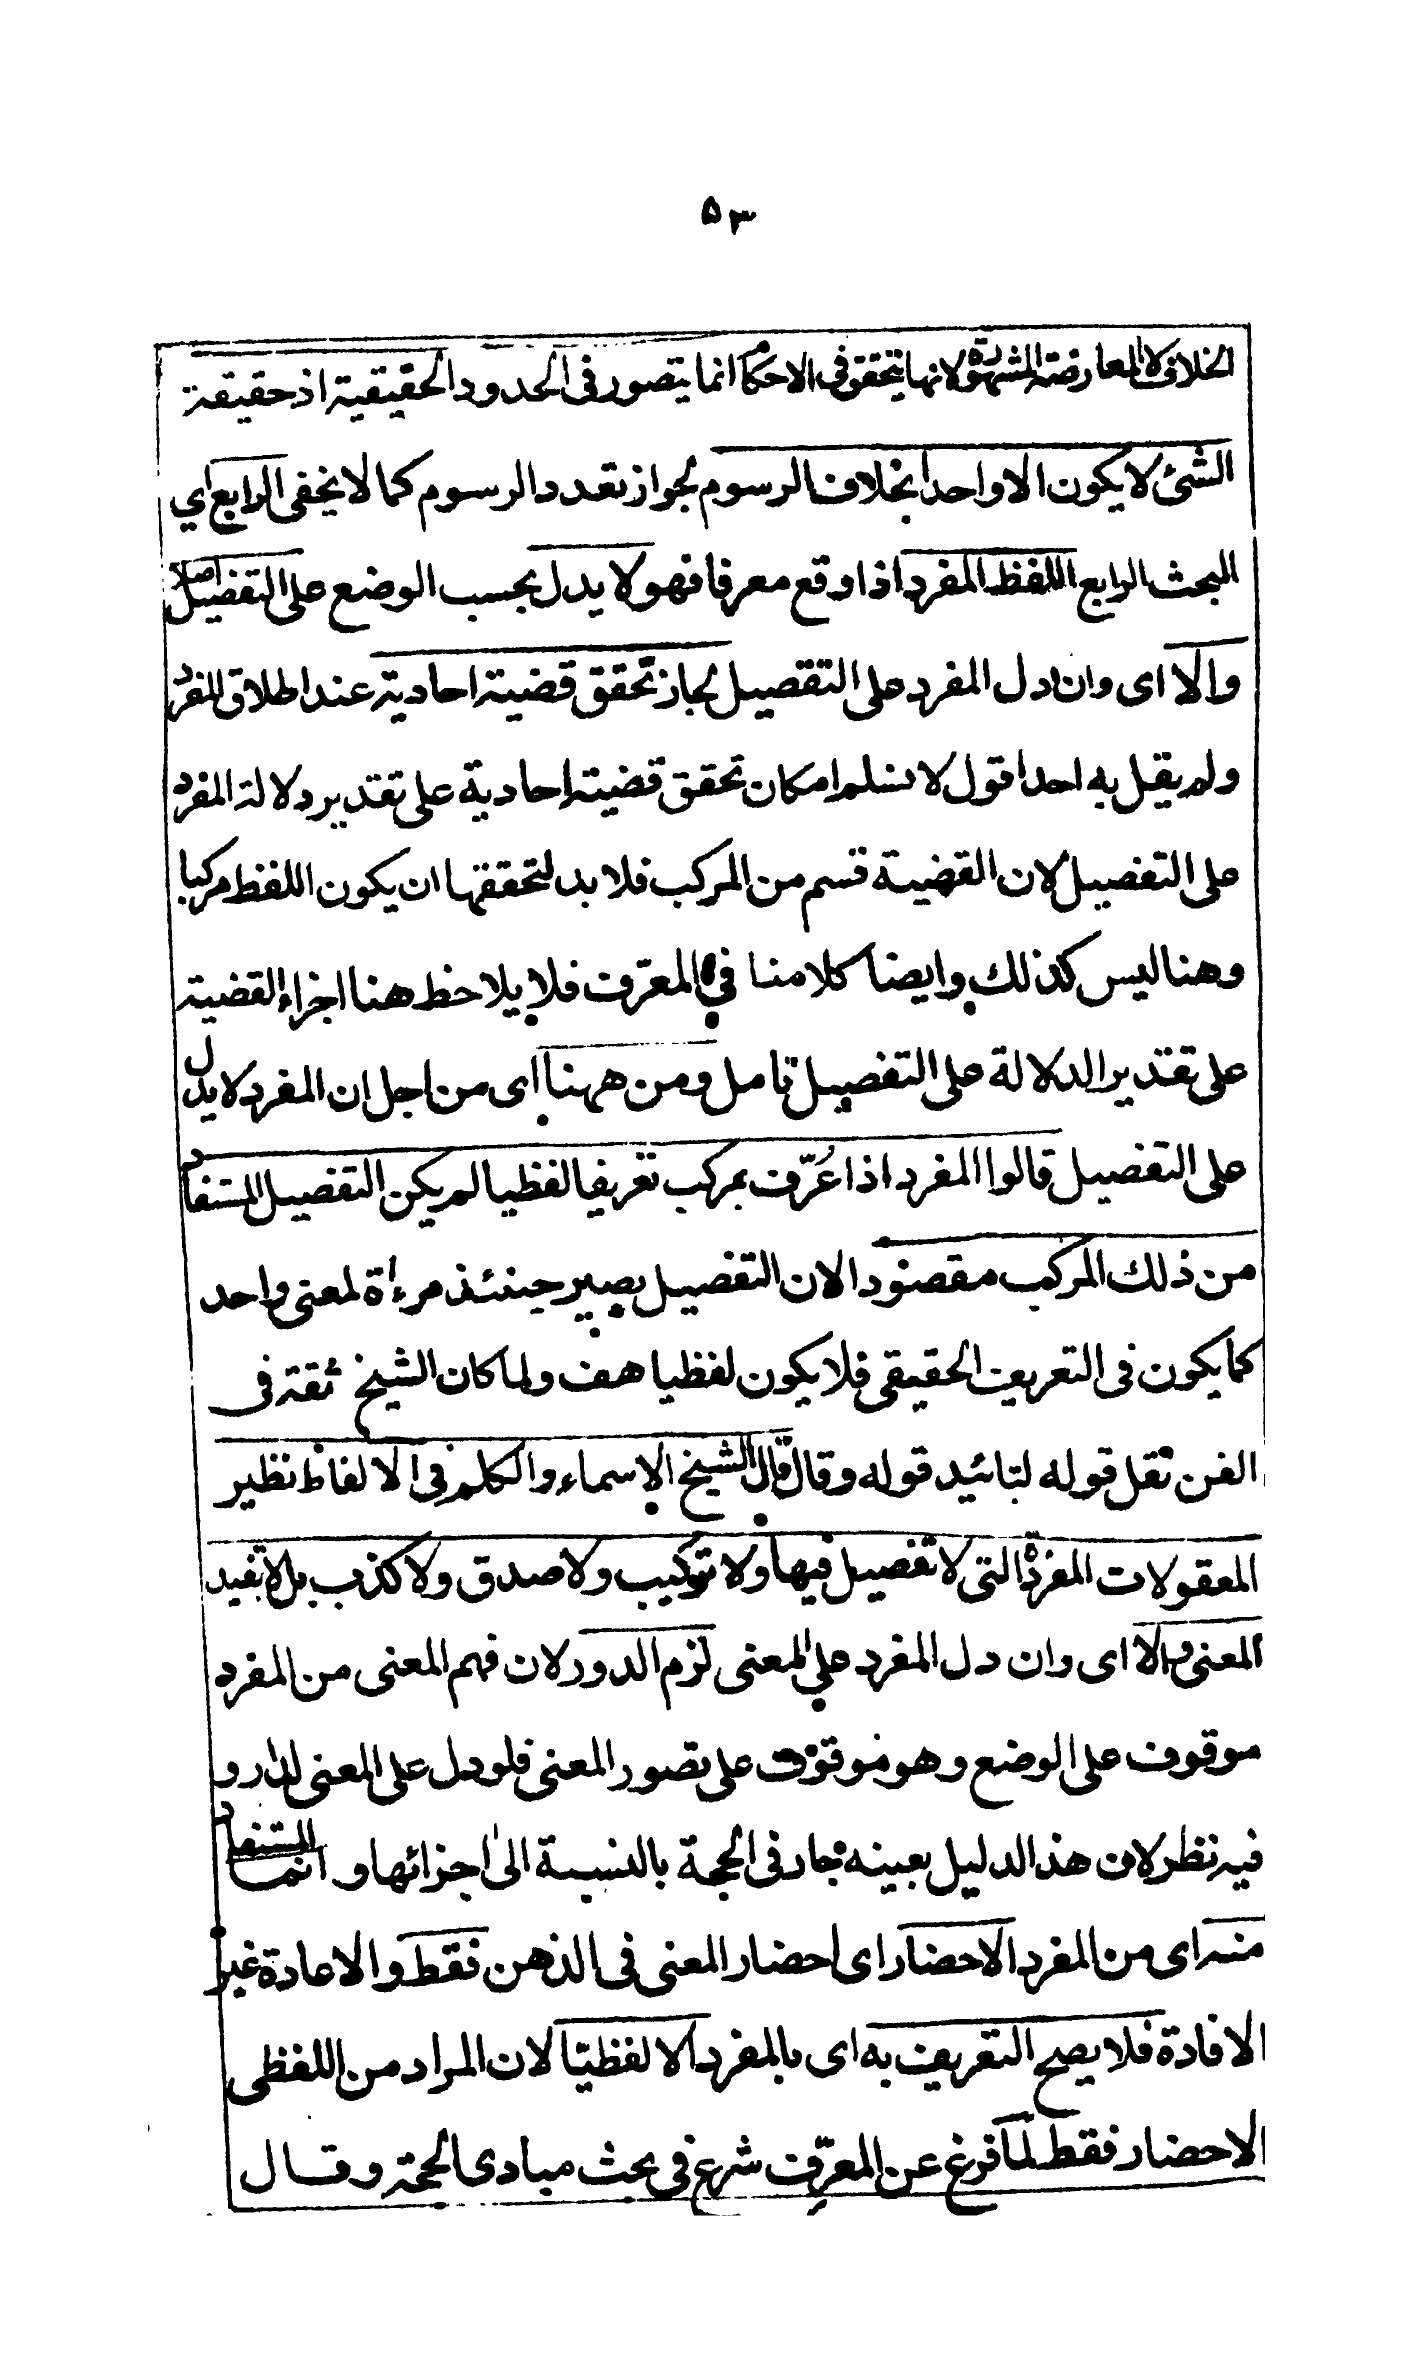 ۵۳
الخلاف لا المعارضة المشهورة لانها يتحقق في الاحكام انما يتصور في الحدود الحقيقية اذ حقيقة
الشئ لا يكون الا واحدا بخلاف الرسوم لجواز تعدد الرسوم كما لا يخفى الرابع اي
البحث الرابع اللفظ المفرد اذا وقع معرفا فهو لا يدل بحسب الوضع على التفصيل اصلا
والا اى وان دل المفرد على التفصيل لجاز تحقق قضية احادية عند اطلاق المفرد
ولم يقل به احد اقول لا نسلم امكان تحقق قضية احادية على تقدير دلالة المفرد
على التفصيل لان القضية قسم من المركب فلا بد لتحققها ان يكون اللفظ مركبا
وهنا ليس كذلك وايضا كلامنا في المعرّف فلا يلاحظ هنا اجزاء القضية
على تقدير الدلالة على التفصيل تامل ومن ههنا اى من اجل ان المفرد لا يدل
على التفصيل قالوا المفرد اذا عُرّف بمركب تعريفا لفظيا لم يكن التفصيل المستفاد
من ذلك المركب مقصودا لان التفصيل يصير حينئذ مرءاة لمعنى واحد
كما يكون فى التعريف الحقيقى فلا يكون لفظيا هف ولما كان الشيخ ثقة فى
الفن نقل قوله لتائيد قوله وقال قال الشيخ الاسماء والكلم فى الالفاظ نظير
المعقولات المفردة التى لا تفصيل فيها ولا تركيب ولا صدق ولا كذب بل لا تفيد
المعنى والا اى وان دل المفرد على المعنى لزم الدور لان فهم المعنى من المفرد
موقوف على الوضع وهو موقوف على تصور المعنى فلو دل على المعنى لدار و
فيه نظر لان هذا الدليل بعينه جار فى الحجة بالنسبة الى اجزائها و انما المستفاد
منه اى من المفرد الاحضار اى احضار المعنى فى الذهن فقط والاعادة غير
الافادة فلا يصح التعريف به اى بالمفرد الا لفظيّا لان المراد من اللفظى
الاحضار فقط لما فرغ عن المعرّف شرع فى بحث مبادى الحجة وقال